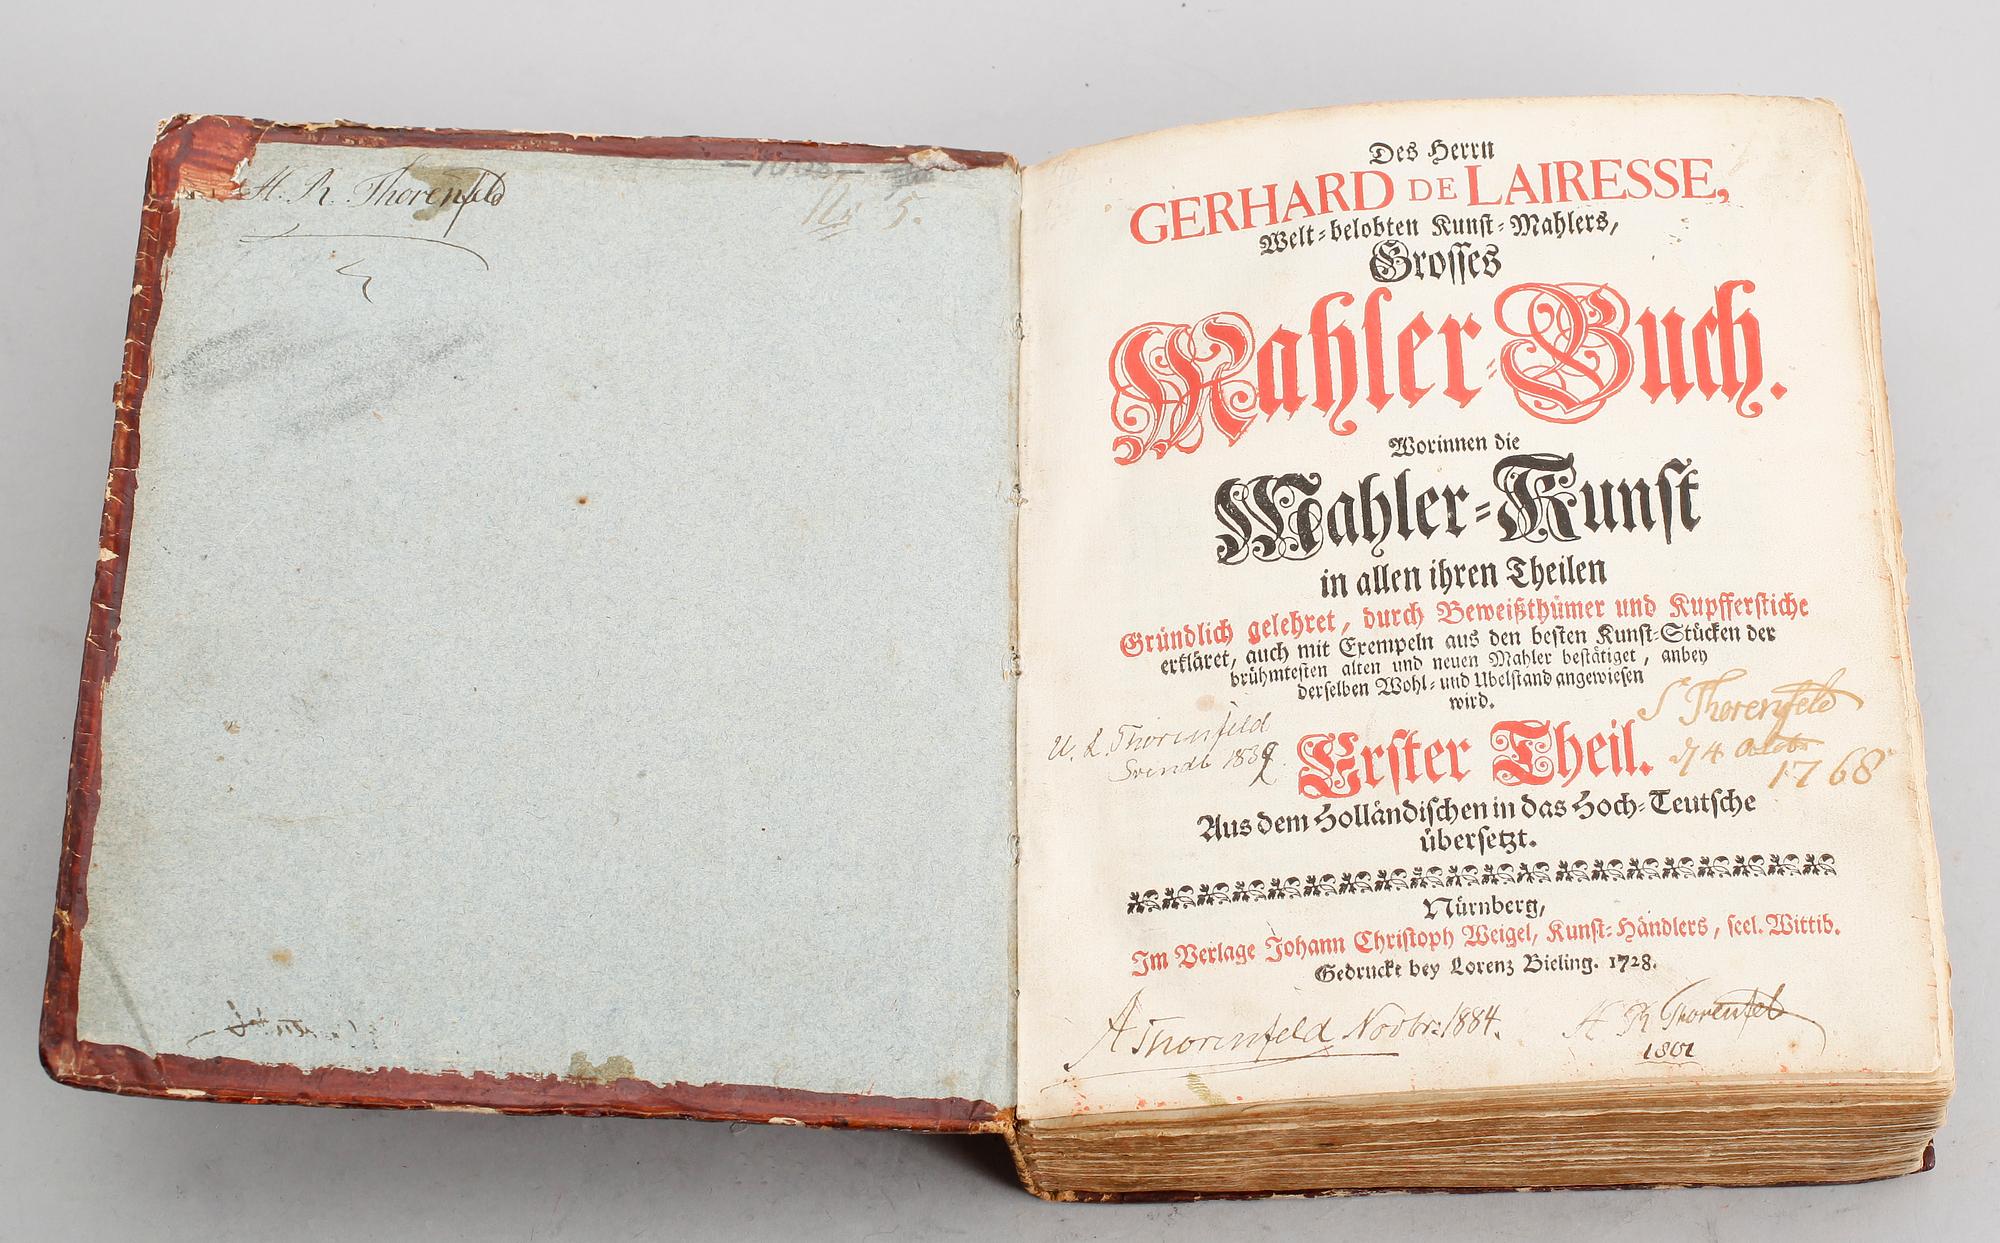 H. R. Thorenfeld
No 5.
Des Herrn
GERHARD DE LAIRESSE,
Welt-belobten Kunst-Mahlers,
Grosses
Mahler-Buch.
Worinnen die
Mahler-Kunst
in allen ihren Theilen
Gründlich gelehret, durch Beweißthümer und Kupfferstiche
erkläret, auch mit Exempeln aus den besten Kunst-Stücken der
brühmtesten alten und neuen Mahler bestätiget, anbey
derselben Wohl- und Ubelstand angewiesen
wird.
S Thorenfeld
d 4 Octobr
1768
U. L. Thorenfeld
1839
Erster Theil.
Aus dem Holländischen in das Hoch-Teutsche
übersetzt.
Nürnberg,
Im Verlage Johann Christoph Weigel, Kunst-Händlers, seel. Wittib.
Gedruckt bey Lorenz Bieling. 1728.
A Thorenfeld Novbr: 1884.
H R Thorenfeld
1801